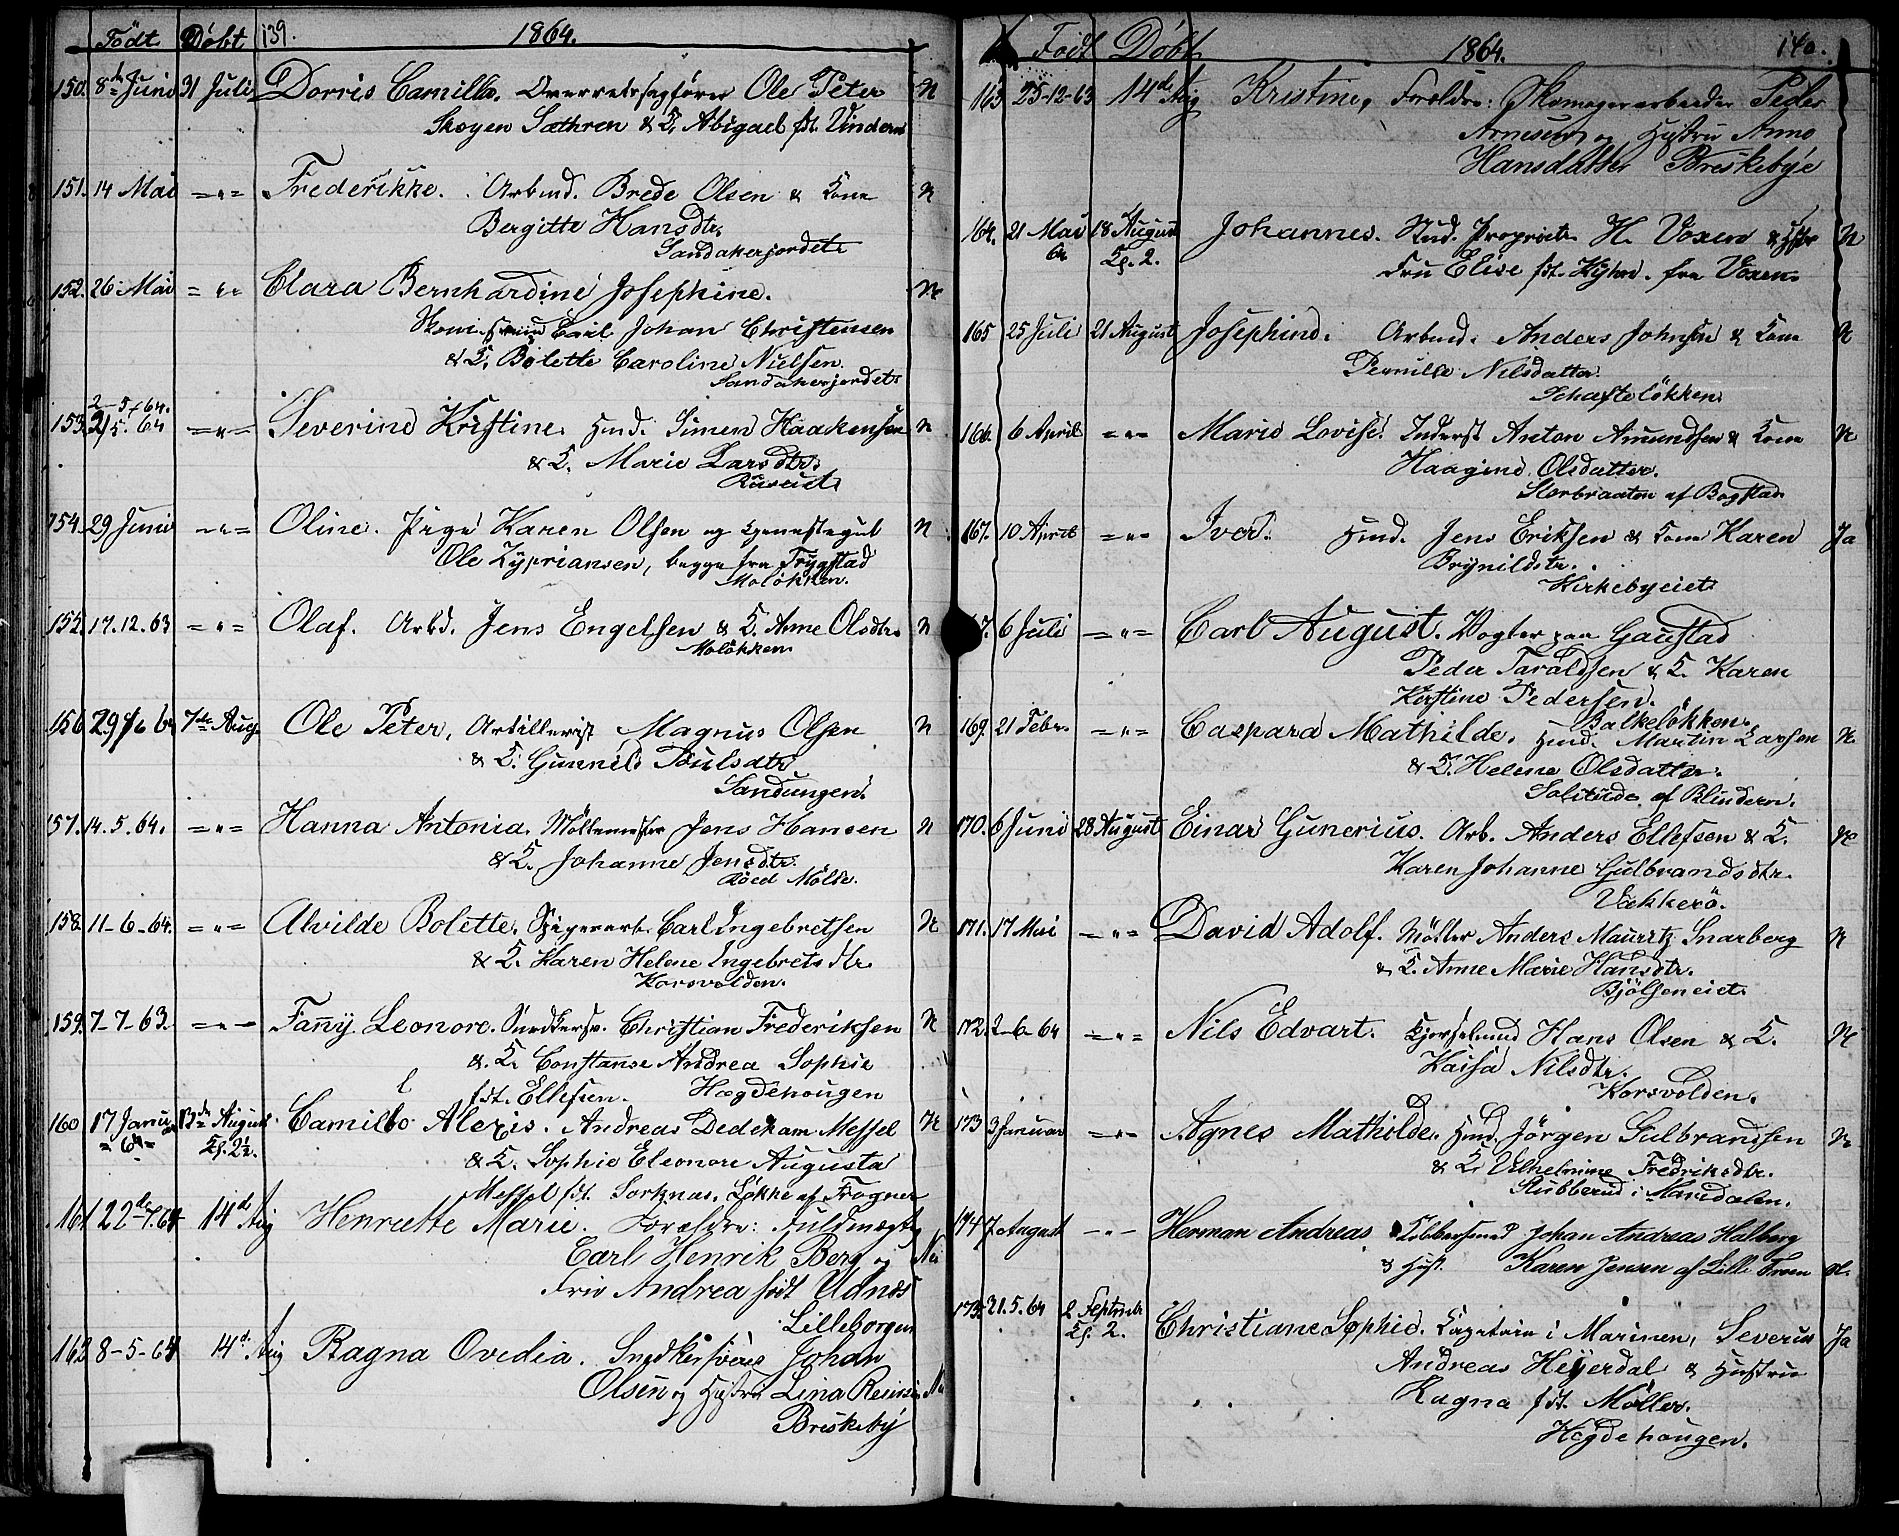 Födt Döbt 139. 1864.
150. 8de Juni 31 Juli Dorris Camilla. Overretssagförer Ole Peter N
Skøyen Sæthren & K. Abigael fdt. Vindern
151. 14 Mai =„= Frederikke. Arbmd. Brede Olsen & Kone N
Bergitte Hansdtr.
Sandakerjordet
152. 26 Mai =„= Clara Bernhardine Josephine. N
Emil Johan Christensen
& K. Bolette Caroline Nielsen.
Sandakerjordet
2-5-64.
153. 2/5. 64 =„= Severine Kristine. Hmd. Simen Haakensen N
& K. Marie Larsdtr.
154. 29 Juni =„= Oline. Pige Karen Olsen og Tjenestegut N
Ole Zypriansen, begge fra Trygstad
Moløkken.
155. 17.12.63 =„= Olaf. Arbd. Jens Engelsen & K. Anne Olsdtr. N
Moløkken
156. 29/6 64 7de Aug. Ole Peter, Artillerist Magnus Olsen N
& K. Gunnild Poulsdtr
Sandungen.
157. 14.5.64. =„= Hanna Antonia. Möllemester Jens Hansen N
& K. Johanne Jensdtr.
Röed Mölle.
158. 11-6-64. =„= Alvilde Bolette. Spigerarb. Carl Ingebretsen N
& K. Karen Helene Ingebretsdtr.
Korsvolden.
159. 7-7-63. =„= Fany Leonore. Snedkersv. Christian Frederiksen N
& K. Constanse Andrea Sophie
fdt. Ellefsen. Hægdehougen
160 17 Januar 13de August Camillo Alexis. Andreas Dedekam Messel N
=64= Kl. 2½. & K. Sophie Eleonore Augusta
Messel fdt. Sorknæs. Løkke af Frogner
161 22de-7.64 14de Aug Henriette Marie. Forældre: Fuldmægtig
Carl Henrik Berg og Nei
Frue Andrea født Udnæs
Lilleborgen
162 8-5-64 14de Aug Ragna Ovedia. Snedkersvend Johan
Olsen og Hustru Lina
Breskeby
Födt Döbt 1864. 140.
163 25-12-63 14de Aug Kristine, Forældre: Skomagerarbeider Peder
Arnesen og Hustru Anne
Hansdatter Breskebye
164. 21 Mai 18 August Johannes. Stud. Proprietær H. Voxen & Hstr N
64 Kl. 2. Fru Elise fdt. fra Voxen.
165 25 Juli 21 August Josephine. Arbmd. Anders Johnsen & Kone N
Pernille Nilsdatter
Schafteløkken
166. 6 April =„= Marie Lovise. Inderst Anton Amundsen & Kone N
Haagine Olsdatter.
Storbraaten af Bogstad
167. 10 April =„= Iver. Hmd. Jens Eriksen & Kone Karen Ja
Brynildstr.
Kirkebyeiet
67. 6 Juli =„= Carl August. Vogter paa Gaustad
Peder Taraldsen & K. Karen
Kirstine Pedersen.
Balkeløkken.
169. 21 Febr. =„= Caspara Mathilde. Hmd. Martin Larsen N.
& K. Helene Olsdatter.
Solitude af Blindern.
170. 6 Juni 28 August Einar Gunerius. Arb. Anders Ellefsen & K. N
Karen Johanne Gulbrandsdtr.
Vækkerö.
171. 17 Mai =„= David Adolf. Möller Anders Mauritz Snarberg N
& K. Anne Marie Hansdtr.
Bjölseneiet
172. 2-6-64 =„= Nils Edvart. Kjørselmd Hans Olsen & K. N
Kaisa Nilsdtr.
Korsvolden.
173 3 Januar =„= Agnes Mathilde. Hmd. Jörgen Gulbrandsen N
& K. Vilhelmine Fredriksdtr.
Stubberud i Maridalen.
174 7 August -„- Herman Andreas. Kobbersmed Johan Andreas Halberg
& Hust. Karen Jensen af Lille Froen N.
175 21.5.64 2 Septembr Christiane Sophie. Kaptain i Marinen, Severin Ja
Kl. 2. Andreas Heyerdal & Hustru
Ragna fdt. Møller.
Hægdehougen.